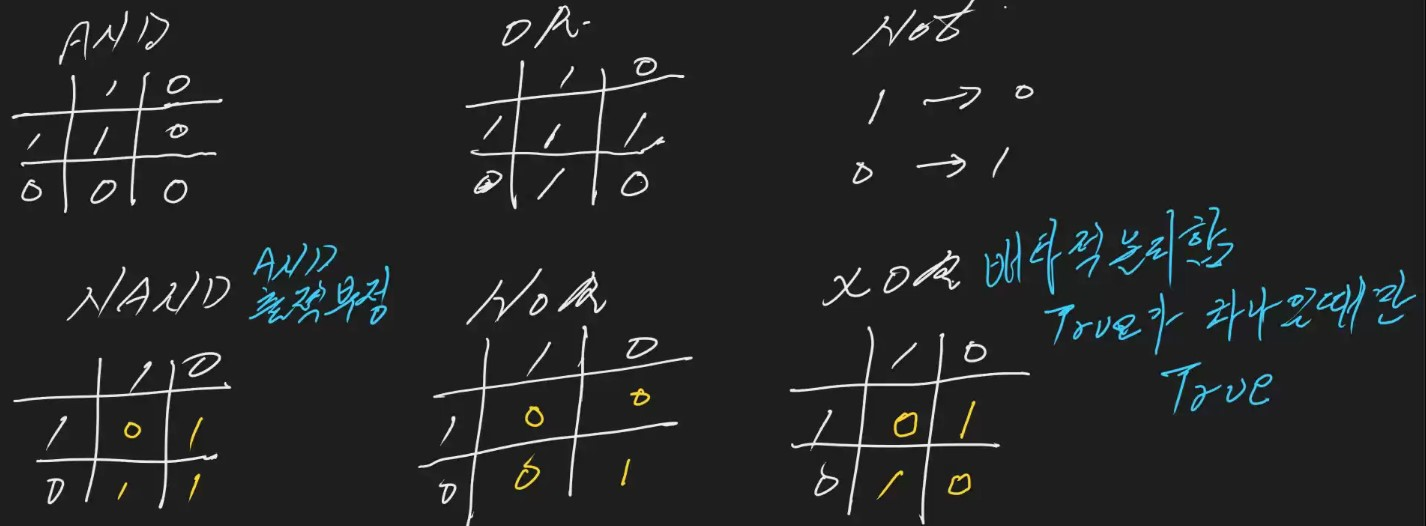 AND
1 0
1 1 0
0 0 0
OR
1 0
1 1 1
0 1 0
Not
1 → 0
0 → 1
NAND
AND
출력부정
1 0
1 0 1
0 1 1
NOR
1 0
1 0 0
0 0 1
XOR 배타적논리합
True가 하나일때만
True
1 0
1 0 1
0 1 0